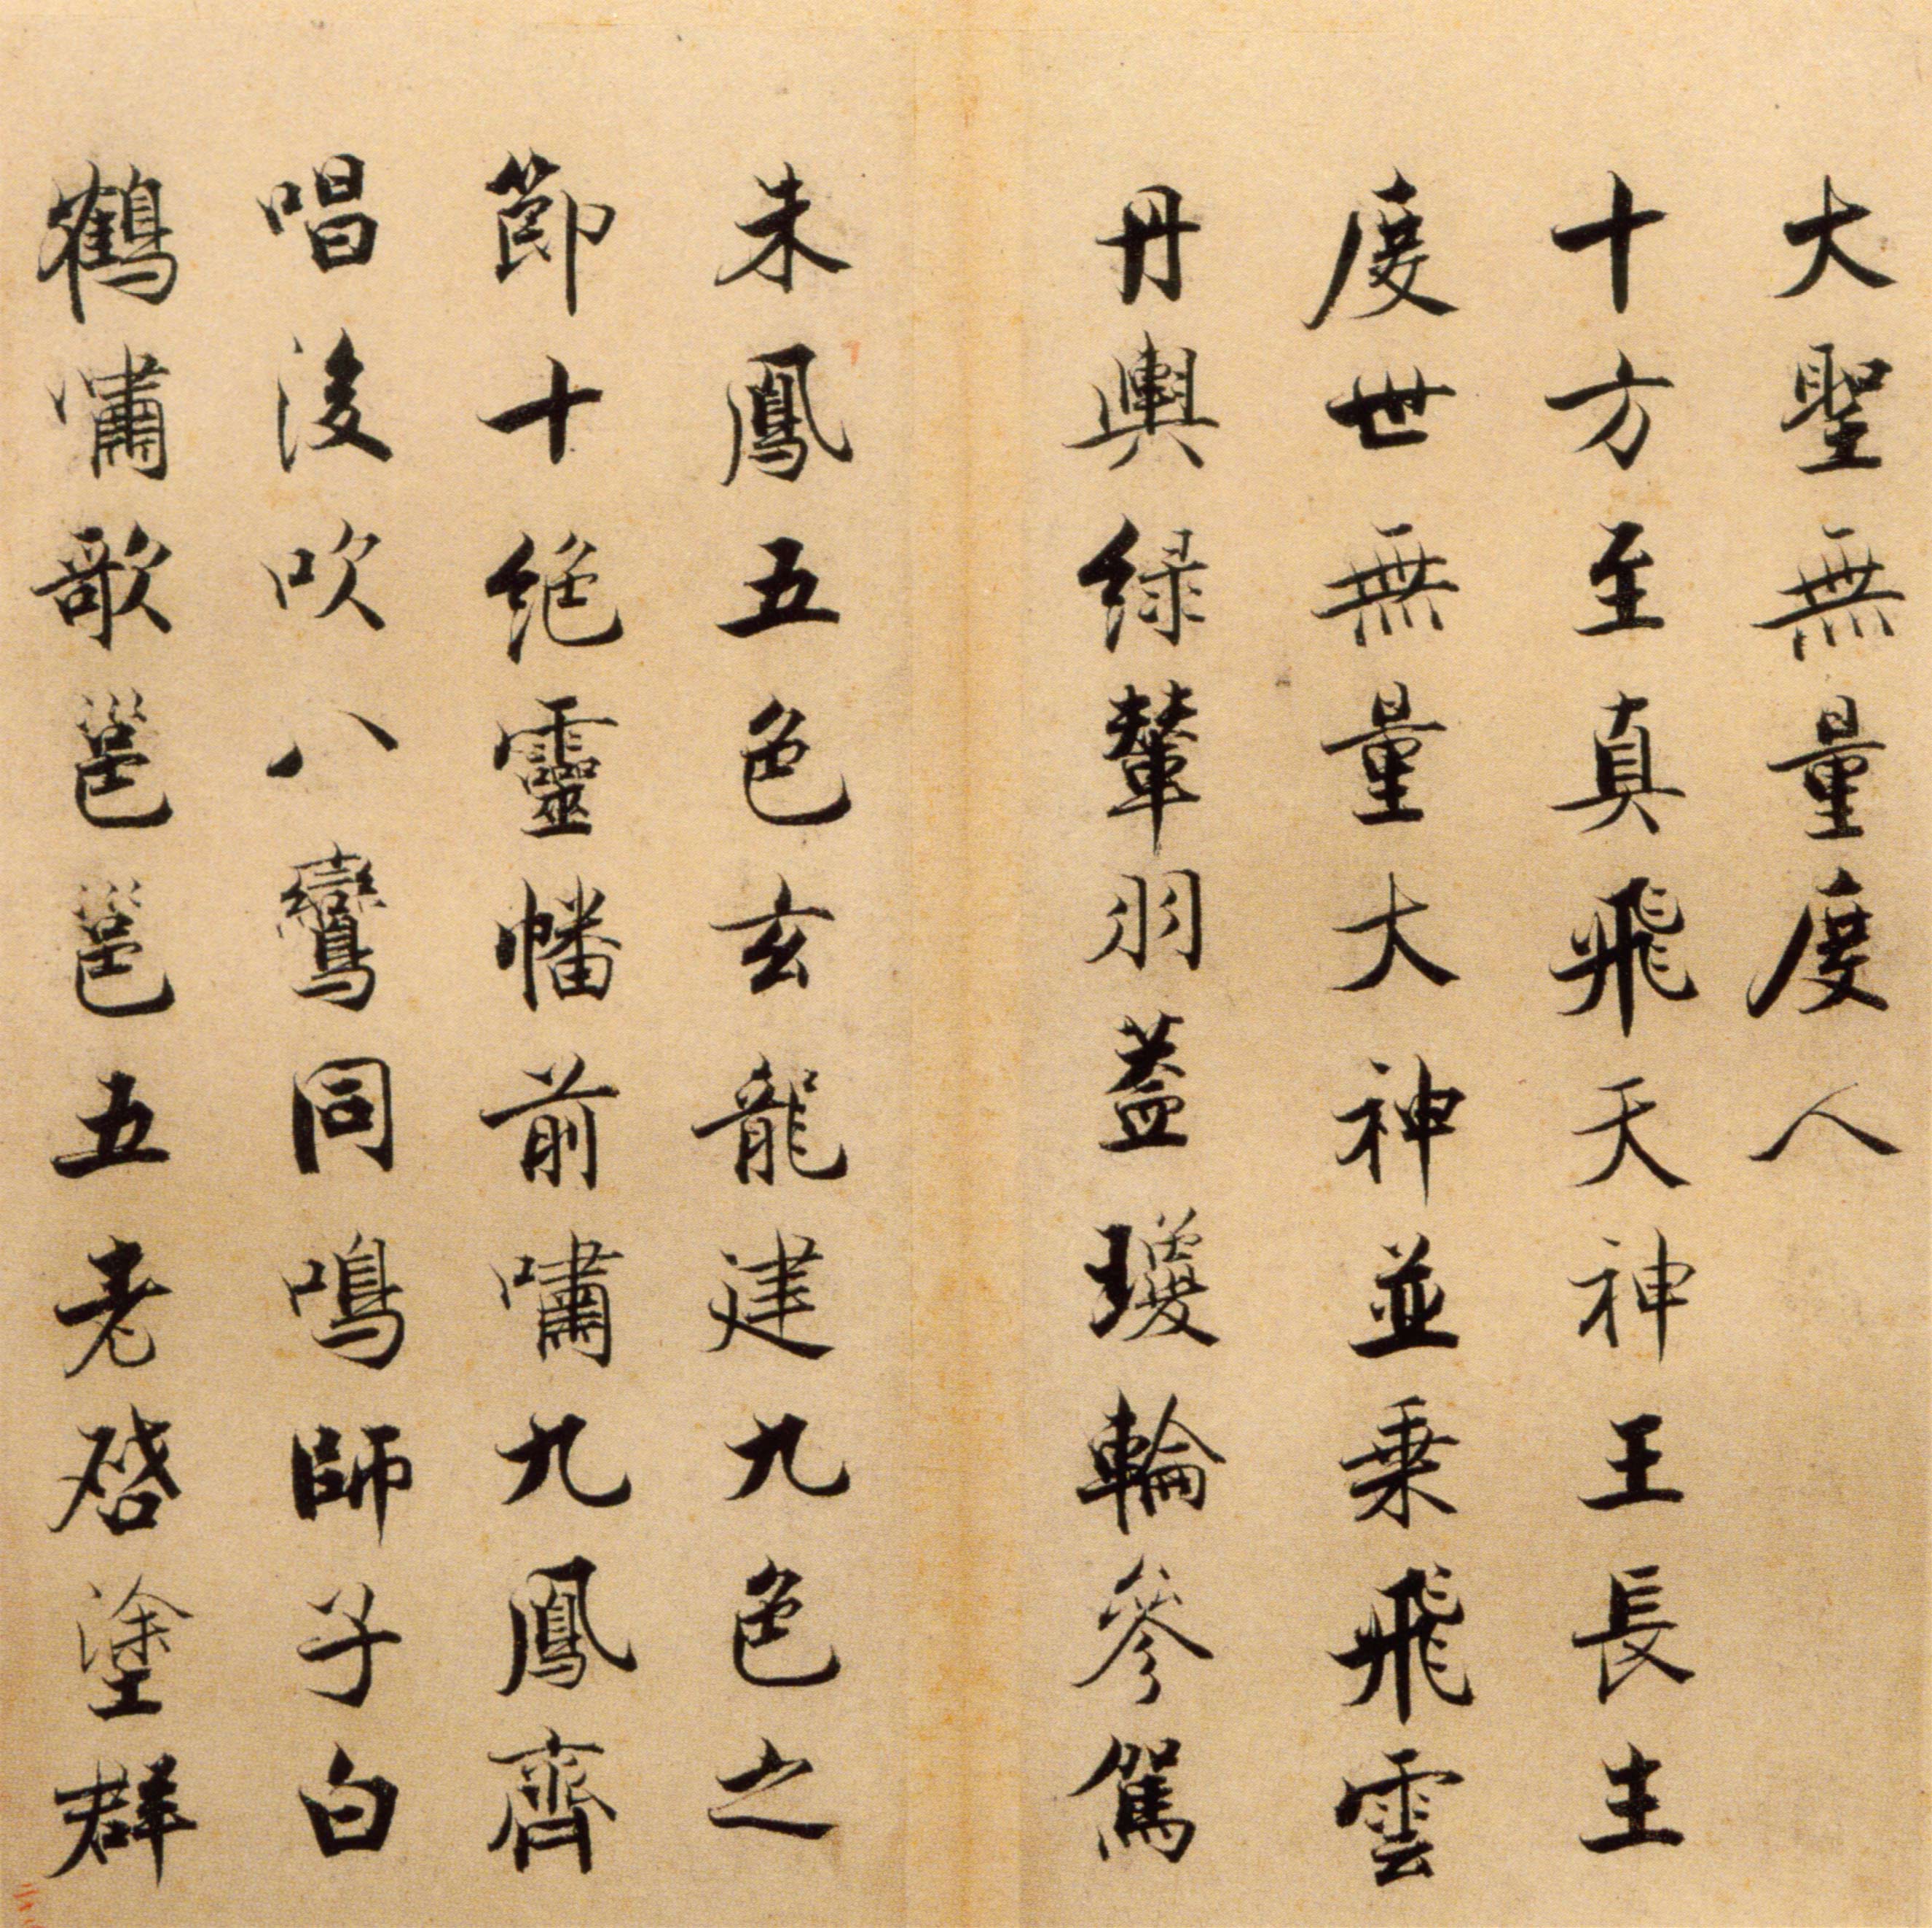 大聖無量度人
十方至真飛天神王長主
度世無量大神並乗飛雲
丹輿緑輦羽蓋瓊輪參駕
朱鳳五色玄龍建九色之
節十絶靈幡前嘯九鳳齊
唱後吹八鸞同鳴師子白
鶴嘯歌邕邕五老啓塗群